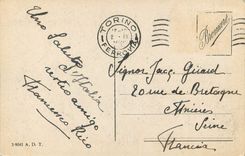 TORINO
FERROVIA
Uno Saluto
d'Italia
vostro amico
Francesco Rico
Signor Jacq. Girard
20 rue de Bretagne
Asnières
Seine
Francia